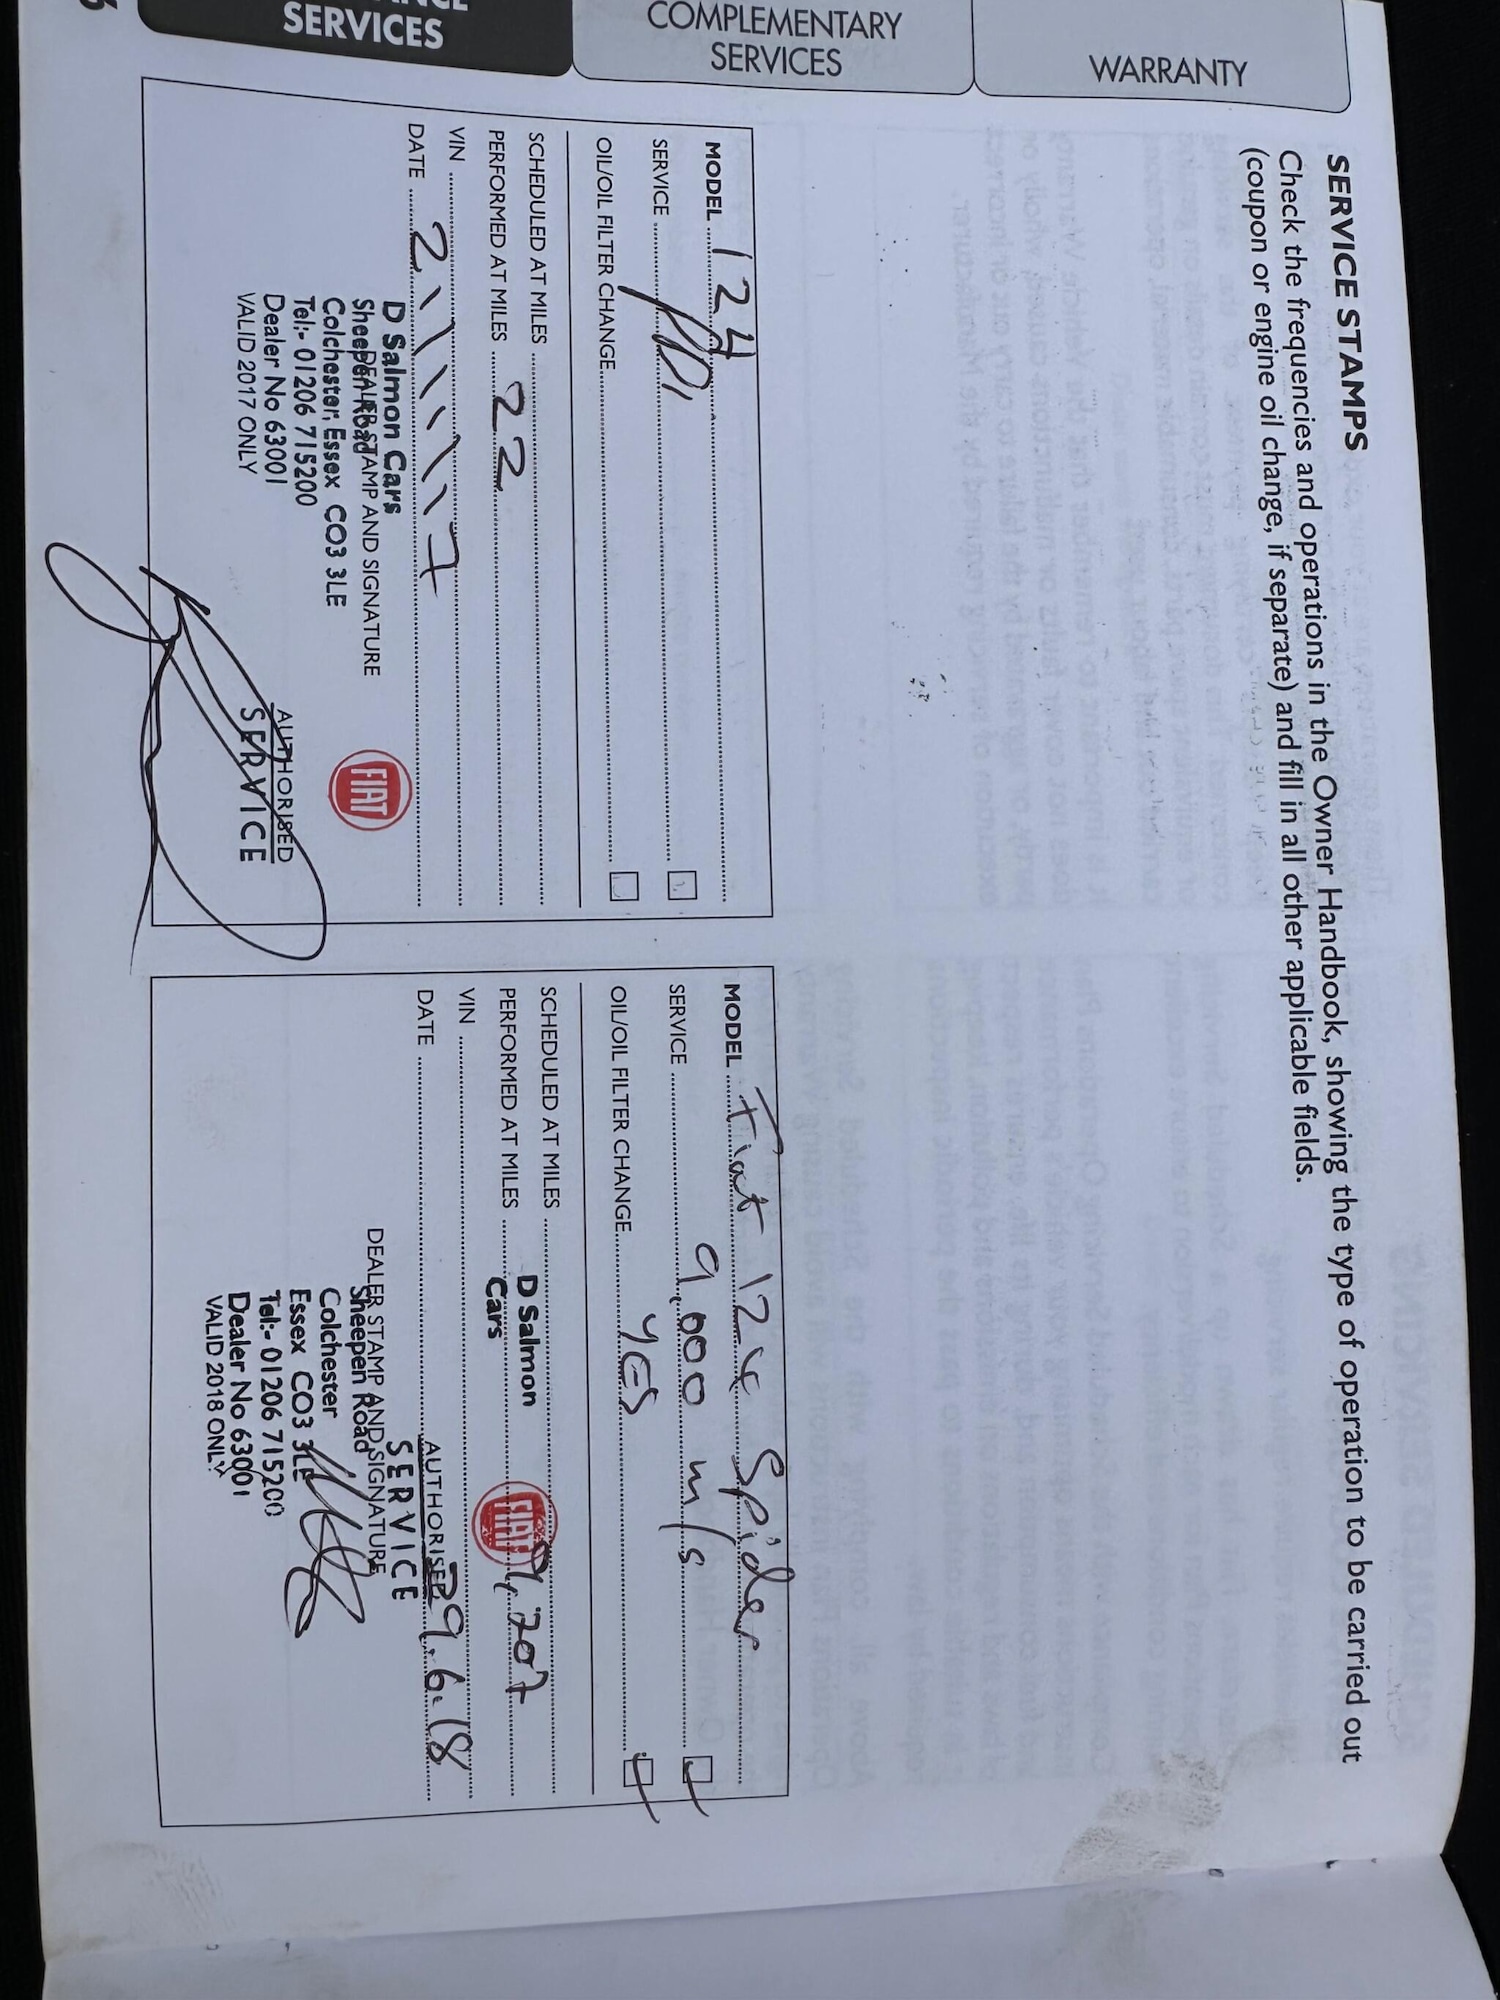 SERVICES
COMPLEMENTARY
SERVICES
WARRANTY
SERVICE STAMPS
Check the frequencies and operations in the Owner Handbook, showing the type of operation to be carried out
(coupon or engine oil change, if separate) and fill in all other applicable fields.
MODEL 124
SERVICE PDI
OIL/OIL FILTER CHANGE
SCHEDULED AT MILES
PERFORMED AT MILES 22
VIN
DATE
D Salmon Cars
DEALER STAMP AND SIGNATURE
Sheepen Road
Colchester, Essex CO3 3LE
Tel:- 01206 715200
Dealer No 63001
VALID 2017 ONLY
FIAT
AUTHORISED
SERVICE
MODEL Fiat 124 Spider
SERVICE 9,000 mls
OIL/OIL FILTER CHANGE YES
SCHEDULED AT MILES
PERFORMED AT MILES
D Salmon
Cars
FIAT
VIN
DATE 29.6.18
AUTHORISED
SERVICE
DEALER STAMP AND SIGNATURE
Sheepen Road
Colchester
Essex CO3 3LE
Tel:- 01206 715200
Dealer No 63001
VALID 2018 ONLY